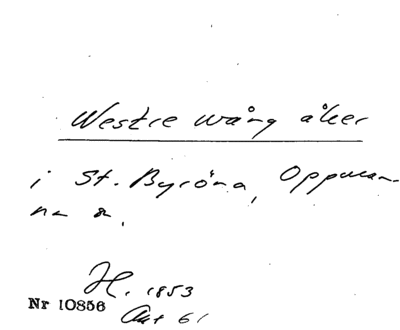 Westre wång åker
i St. Byröna, Oppmanna s.
H. 1853
Nr 10856 Akt 61